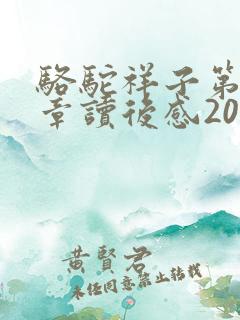 駱駝祥子第
章讀後感20
黃賢君
未經同意禁止轉載